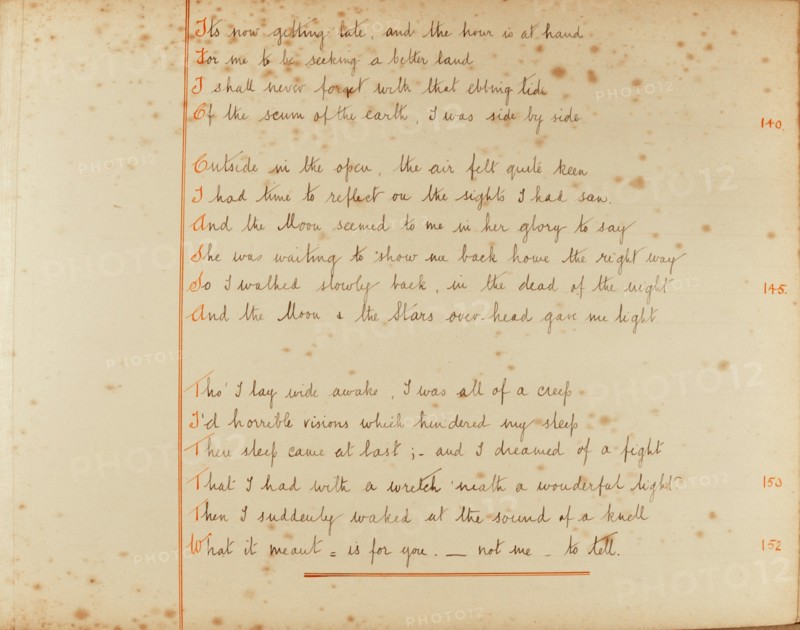 Its now getting late, and the hour is at hand
For me to be seeking a better land
I shall never forget with that ebbing tide
Of the scum of the earth, I was side by side
140.
Outside in the open, the air felt quite keen
I had time to reflect on the sights I had saw.
And the Moon seemed to me in her glory to say
She was waiting to show me back home the right way
So I walked slowly back, in the dead of the night
145.
And the Moon & the Stars over-head gave me light
Tho' I lay wide awake, I was all of a creep
I'd horrible visions which hindered my sleep
Then sleep came at last ;- and I dreamed of a fight
That I had with a wretch 'neath a wonderful light
150
Then I suddenly waked at the sound of a knell
What it meant = is for you. — not me - to tell.
152
PHOTO12